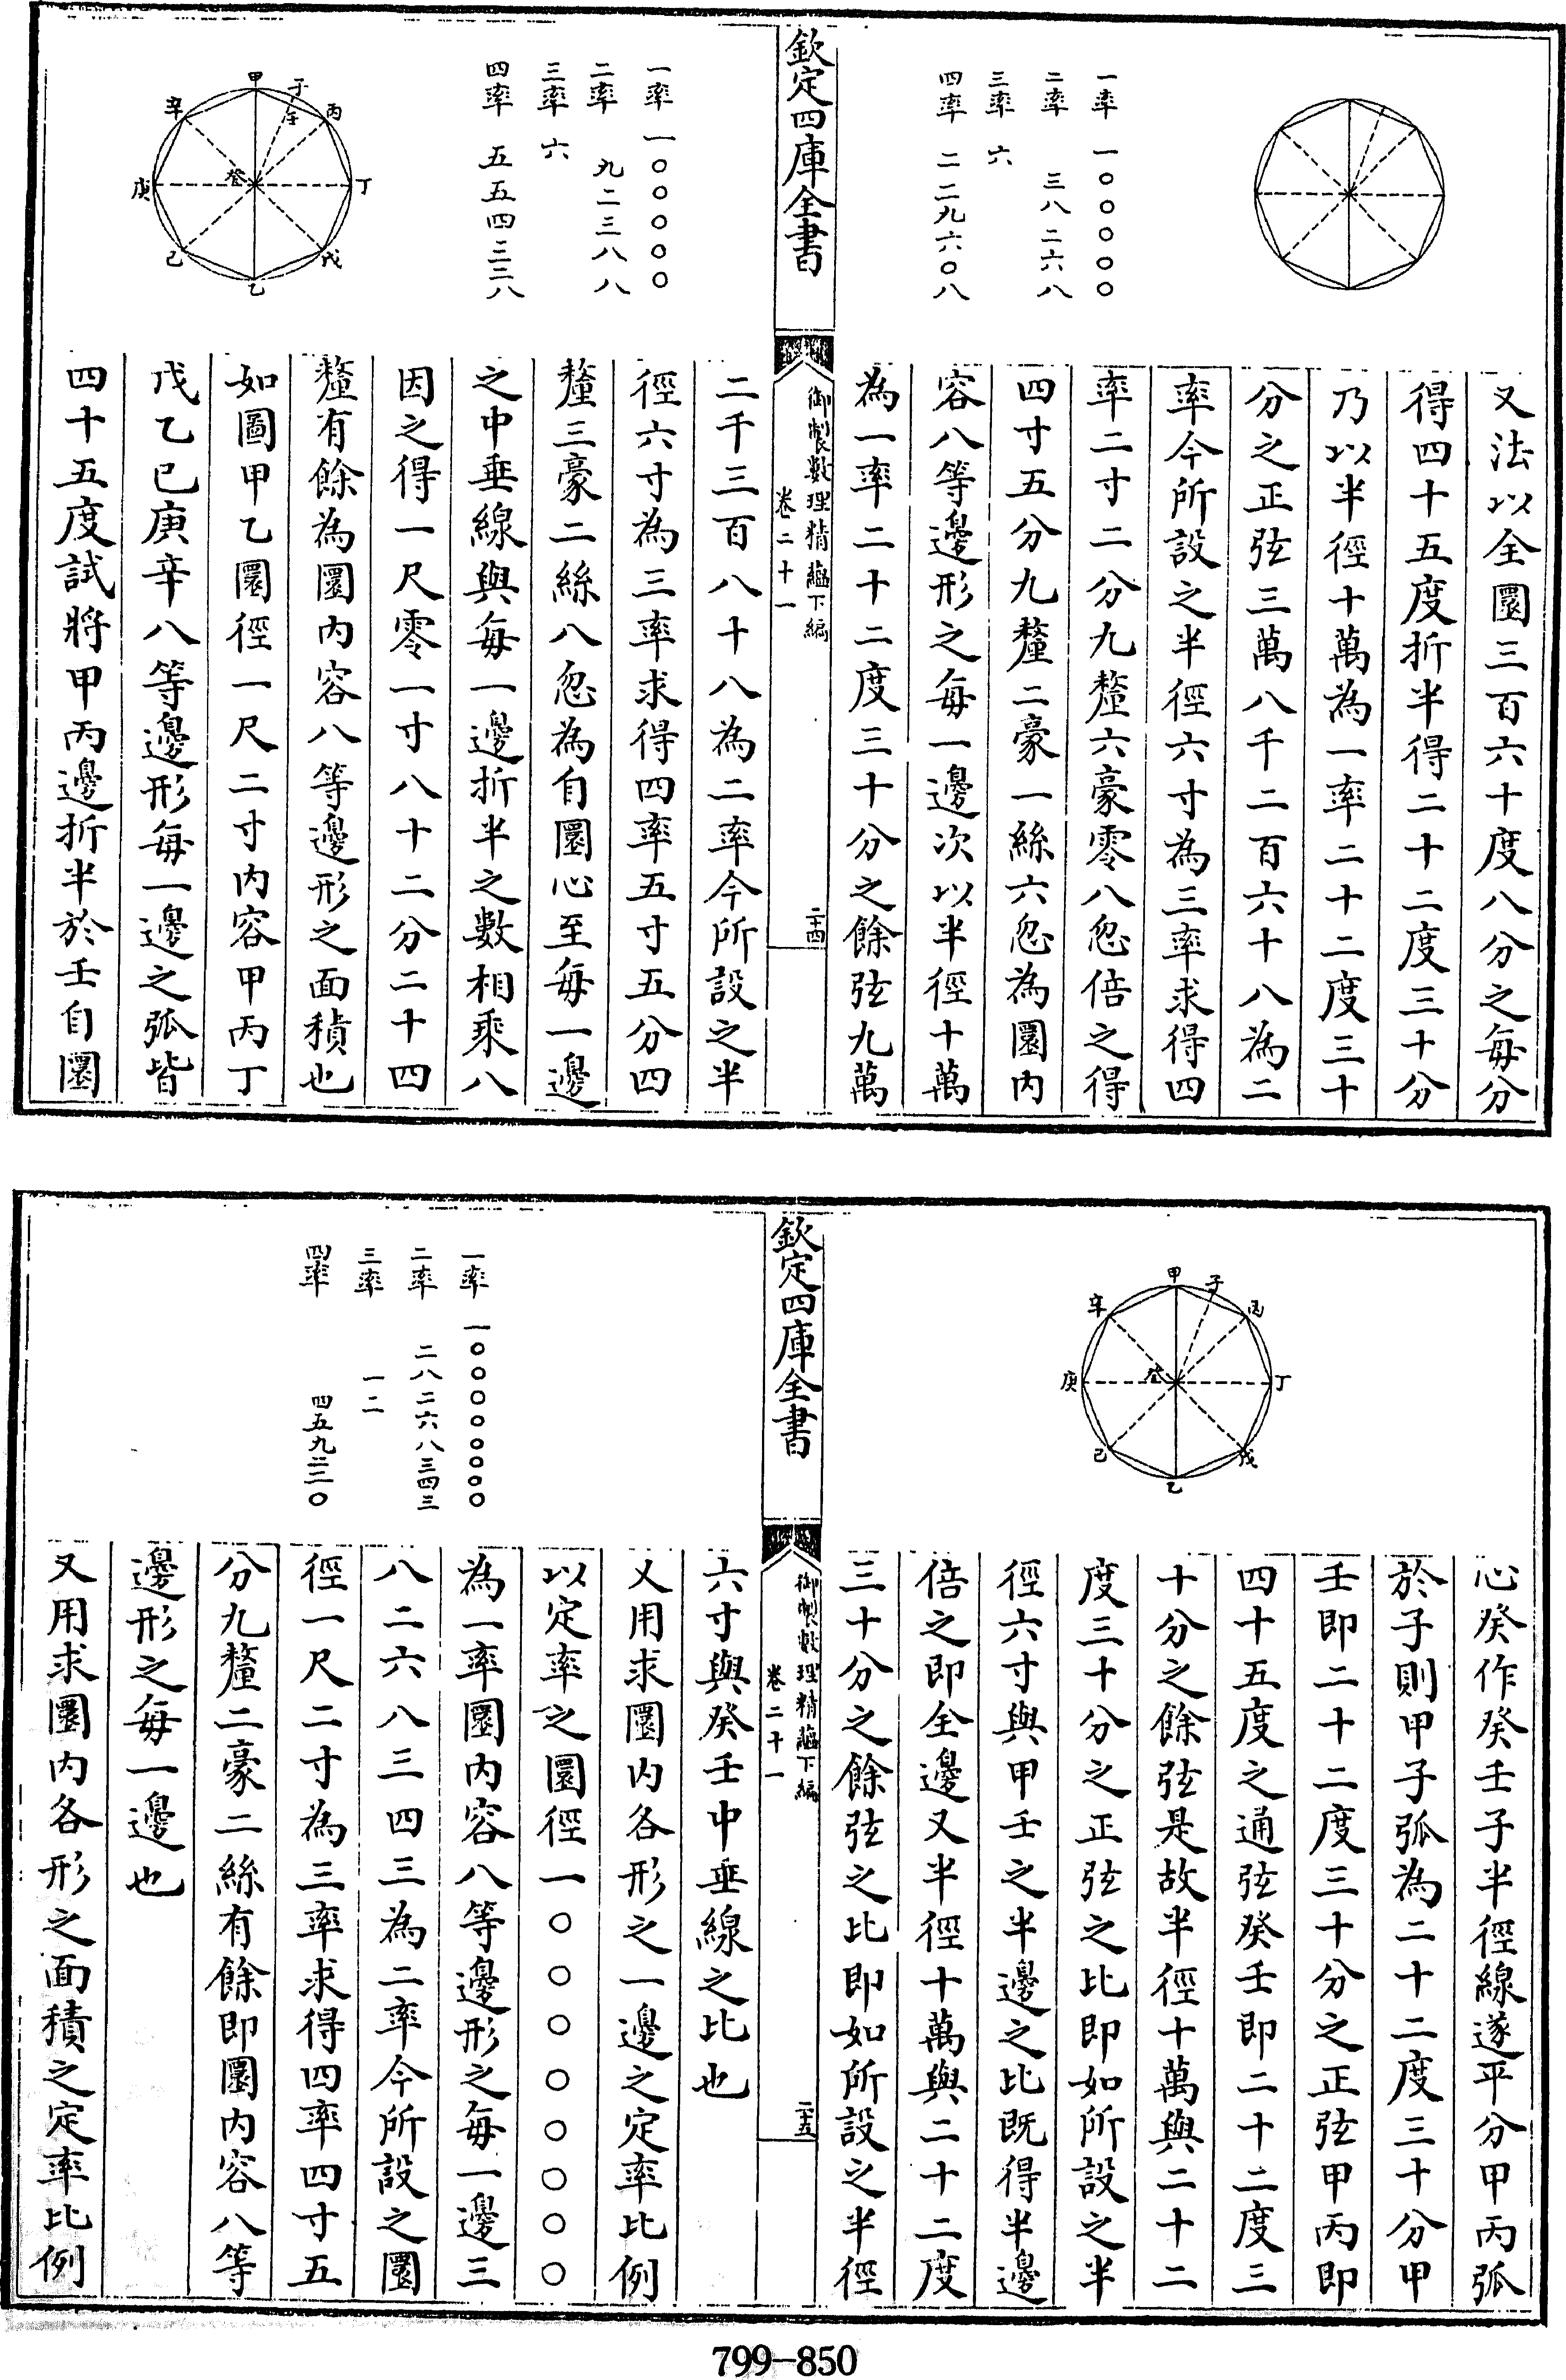 一率 一〇〇〇〇〇
二率 三八二六八
三率 六
四率 二二九六〇八
又法以全圜三百六十度八分之每分
得四十五度折半得二十二度三十分
乃以半徑十萬為一率二十二度三十
分之正弦三萬八千二百六十八為二
率今所設之半徑六寸為三率求得四
率二寸二分九釐六豪零八忽倍之得
四寸五分九釐二豪一絲六忽為圜内
容八等邊形之每一邊次以半徑十萬
為一率二十二度三十分之餘弦九萬
欽定四庫全書
御製數理精藴下編
卷二十一
二十四
一率 一〇〇〇〇〇
二率 九二三八八
三率 六
四率 五五四三二八
甲
子
丙
壬
辛
癸
丁
庚
戊
己
乙
二千三百八十八為二率今所設之半
徑六寸為三率求得四率五寸五分四
釐三豪二絲八忽為自圜心至每一邊
之中垂線與每一邊折半之數相乘八
因之得一尺零一寸八十二分二十四
釐有餘為圜内容八等邊形之面積也
如圖甲乙圜徑一尺二寸内容甲丙丁
戊乙已庚辛八等邊形每一邊之弧皆
四十五度試將甲丙邊折半於壬自圜
甲
子
丙
辛
癸
丁
庚
戊
己
乙
心癸作癸壬子半徑線遂平分甲丙弧
於子則甲子弧為二十二度三十分甲
壬即二十二度三十分之正弦甲丙即
四十五度之通弦癸壬即二十二度三
十分之餘弦是故半徑十萬與二十二
度三十分之正弦之比即如所設之半
徑六寸與甲壬之半邊之比既得半邊
倍之即全邊又半徑十萬與二十二度
三十分之餘弦之比即如所設之半徑
欽定四庫全書
御製數理精藴下編
卷二十一
二十五
一率 一〇〇〇〇〇〇〇〇
二率 二八二六八三四三
三率 一二
四率 四五九二二〇
六寸與癸壬中垂線之比也
又用求圜内各形之一邊之定率比例
以定率之圜徑一〇〇〇〇〇〇〇〇
為一率圜内容八等邊形之每一邊三
八二六八三四三為二率今所設之圜
徑一尺二寸為三率求得四率四寸五
分九釐二豪二絲有餘即圜内容八等
邊形之每一邊也
又用求圜内各形之面積之定率比例
799-850